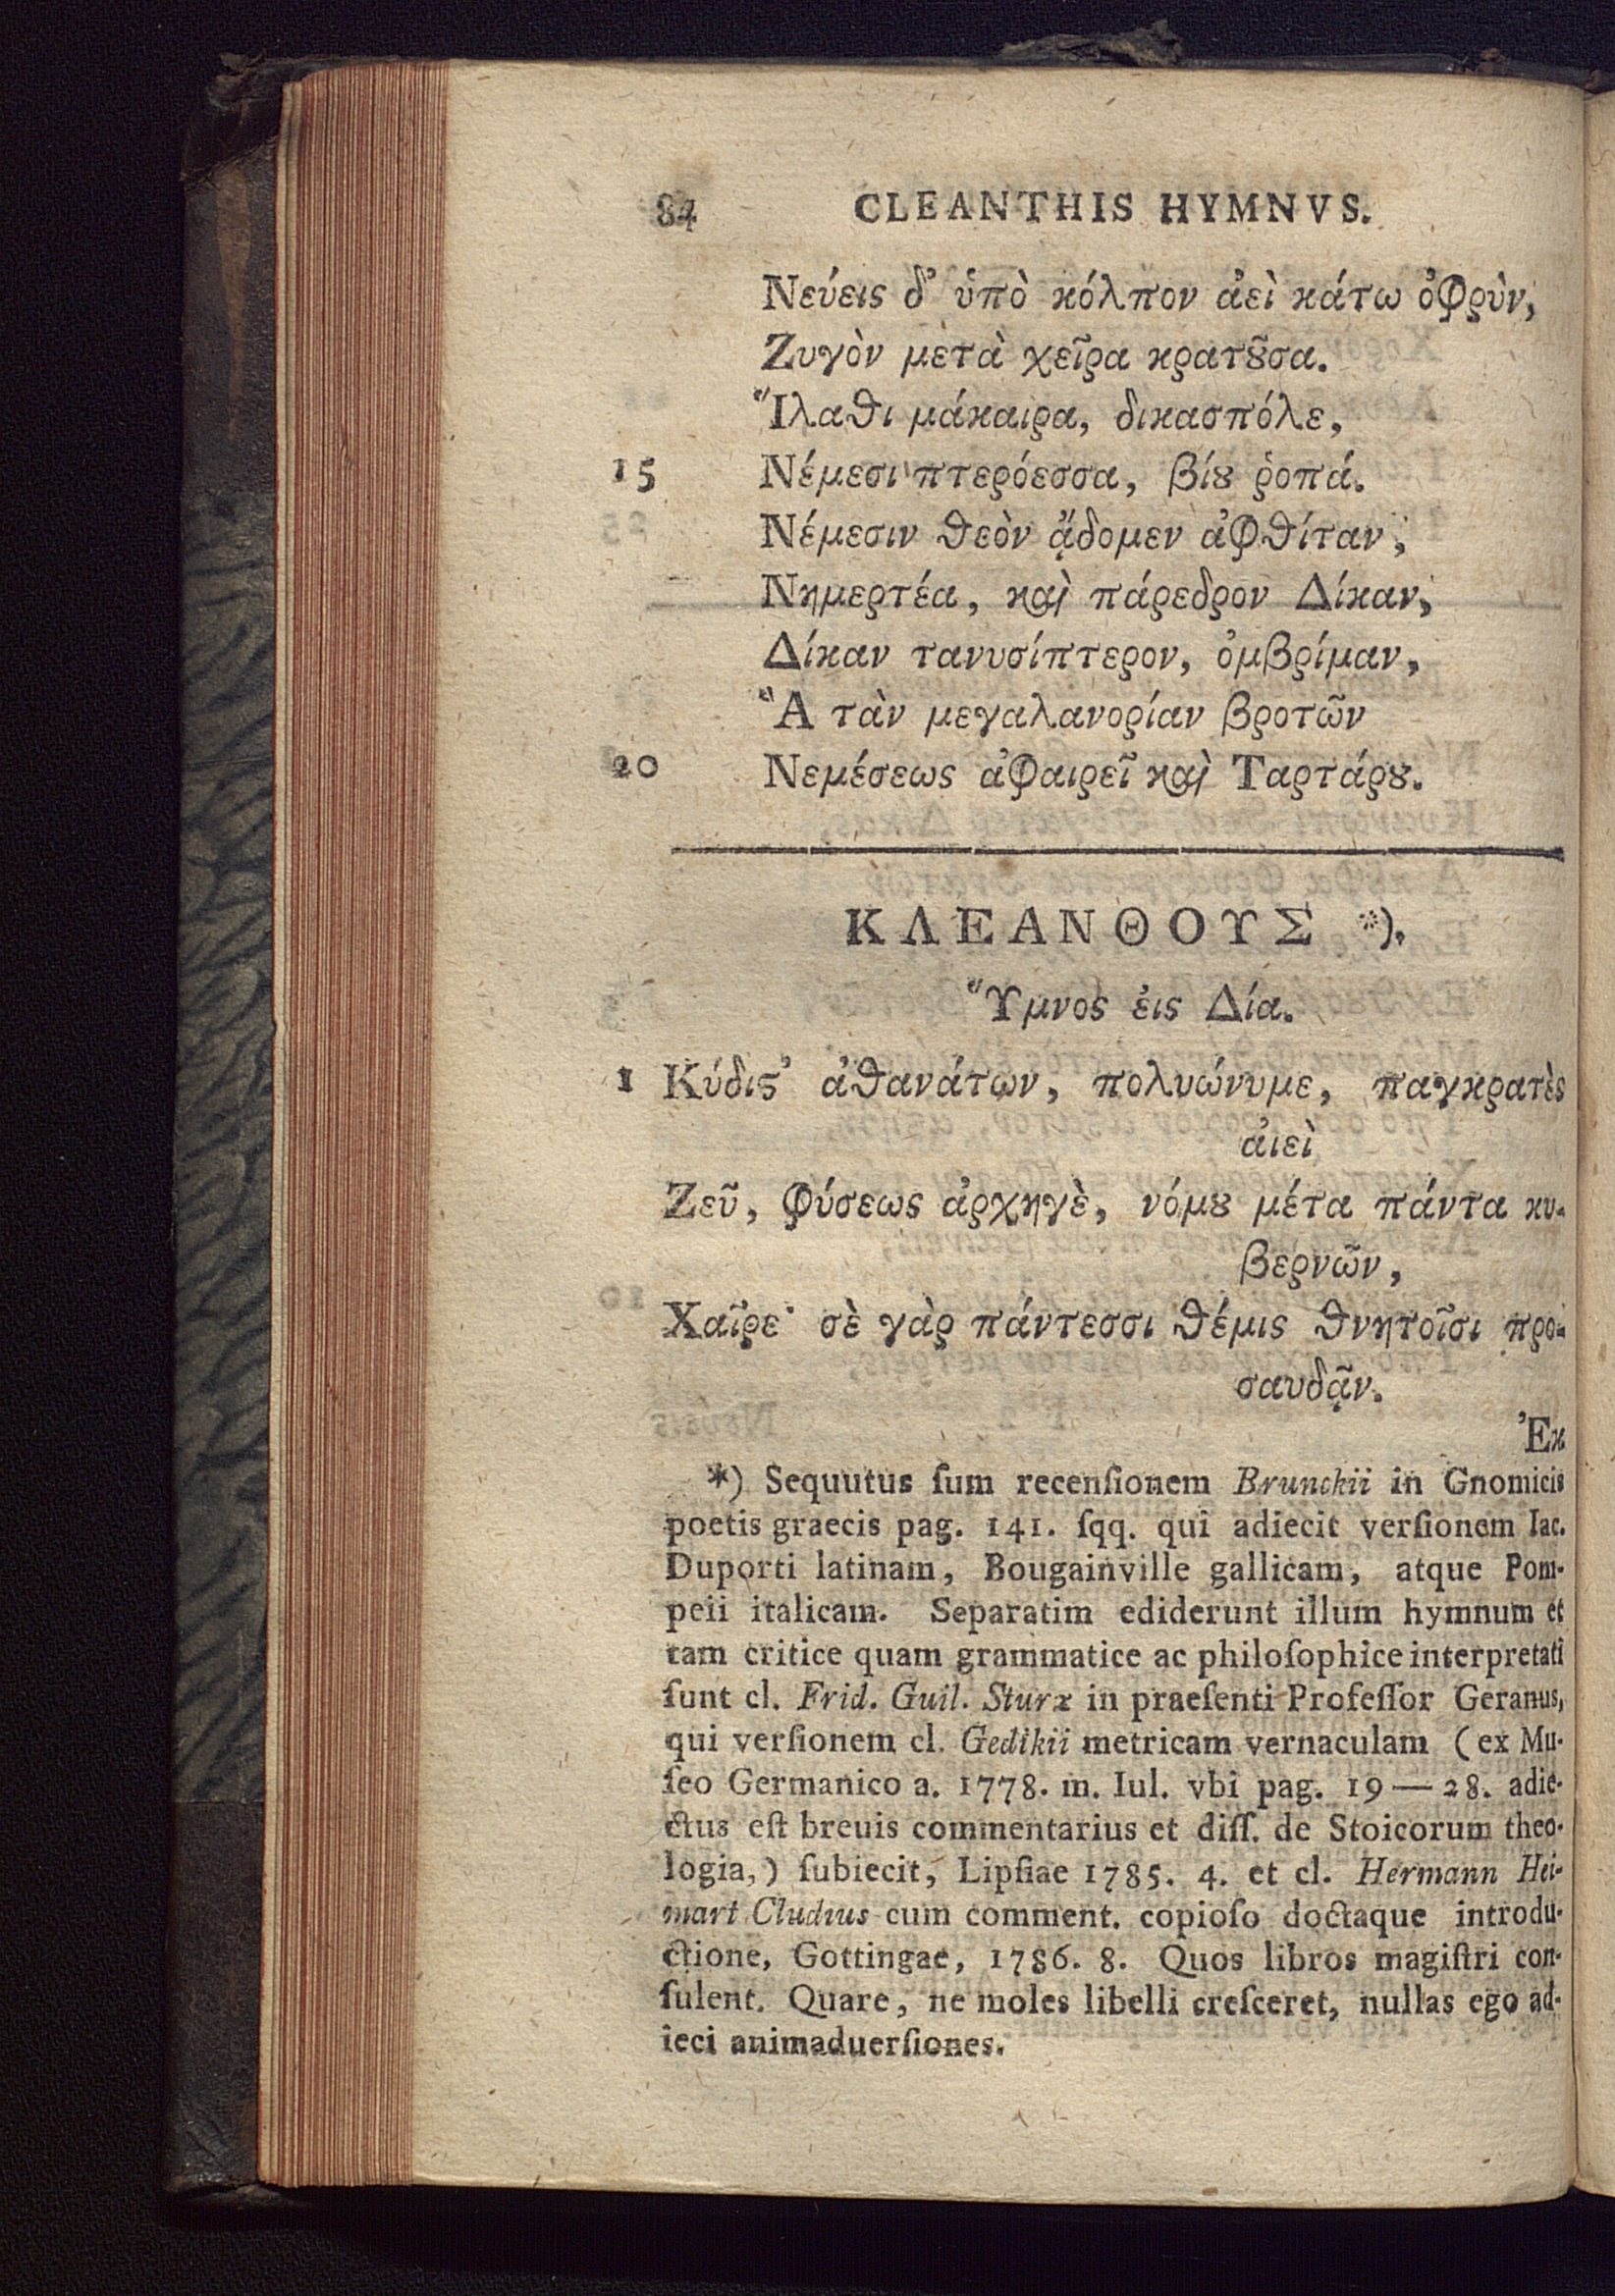 84 CLEANTHIS HYMNVS.
Νεύεις δ' ὑπὸ κόλπον ἀεὶ κάτω ὀφρὺν,
Ζυγὸν μετὰ χεῖρα κρατȣ͂σα.
Ἵλαθι μάκαιρα, δικασπόλε,
15 Νέμεσι πτερόεσσα, βίȣ ῥοπά.
Νέμεσιν θεὸν ᾄδομεν ἀφθίταν,
Νημερτέα, καὶ πάρεδρον Δίκαν,
Δίκαν τανυσίπτερον, ὀμβρίμαν,
Ἃ τὰν μεγαλανορίαν βροτῶν
20 Νεμέσεως ἀφαιρεῖ καὶ Ταρτάρȣ.
ΚΛΕΑΝΘΟΥΣ *).
Ὕμνος ἐις Δία.
1 Κύδιϛ' ἀθανάτων, πολυώνυμε, παγκρατὲς
ἀιεὶ
Ζεῦ, φύσεως ἀρχηγὲ, νόμȣ μέτα πάντα κυ-
βερνῶν,
Χαῖρε· σὲ γὰρ πάντεσσι θέμις θνητοῖσι προ-
σαυδᾷν.
Ἐκ
*) Sequutus ſum recenſionem Brunckii in Gnomicis
poetis graecis pag. 141. ſqq. qui adiecit verſionem Iac.
Duporti latinam, Bougainville gallicam, atque Pom-
peii italicam. Separatim ediderunt illum hymnum et
tam critice quam grammatice ac philoſophice interpretati
ſunt cl. Frid. Guil. Sturz in praeſenti Profeſſor Geranus,
qui verſionem cl. Gedikii metricam vernaculam (ex Mu-
ſeo Germanico a. 1778. m. Iul. vbi pag. 19—28. adie-
ctus eſt breuis commentarius et diſſ. de Stoicorum theo-
logia,) ſubiecit, Lipſiae 1785. 4. et cl. Hermann Hei-
mart Cludius cum comment. copioſo doctaque introdu-
ctione, Gottingae, 1786. 8. Quos libros magiſtri con-
ſulent. Quare, ne moles libelli creſceret, nullas ego ad-
ieci animaduerſiones.